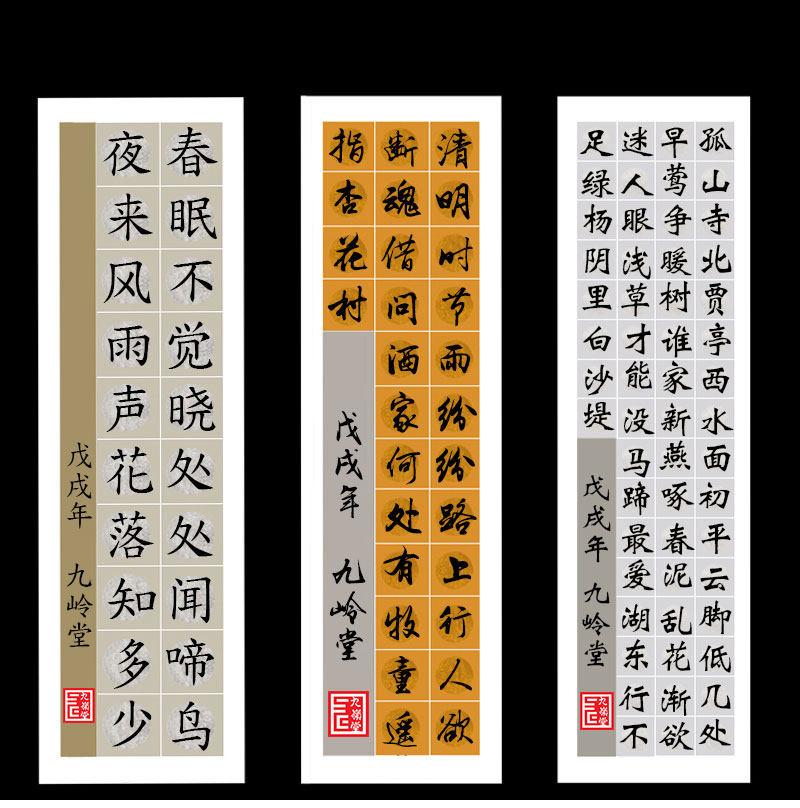 春眠不觉晓处处闻啼鸟
夜来风雨声花落知多少
戊戌年 九岭堂
九嶺堂
清明时节雨纷纷路上行人欲
断魂借问酒家何处有牧童遥
指杏花村
戊戌年 九岭堂
九嶺堂
孤山寺北贾亭西水面初平云脚低几处
早莺争暖树谁家新燕啄春泥乱花渐欲
迷人眼浅草才能没马蹄最爱湖东行不
足绿杨阴里白沙堤
戊戌年 九岭堂
九嶺堂